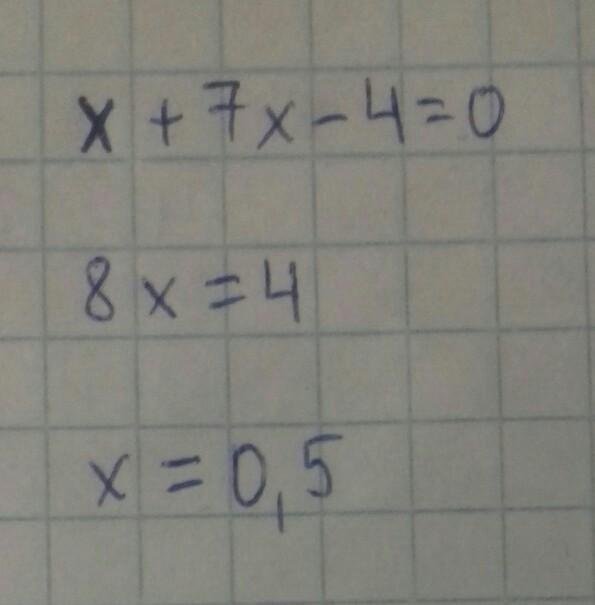 x + 7x - 4 = 0
8x = 4
x = 0,5